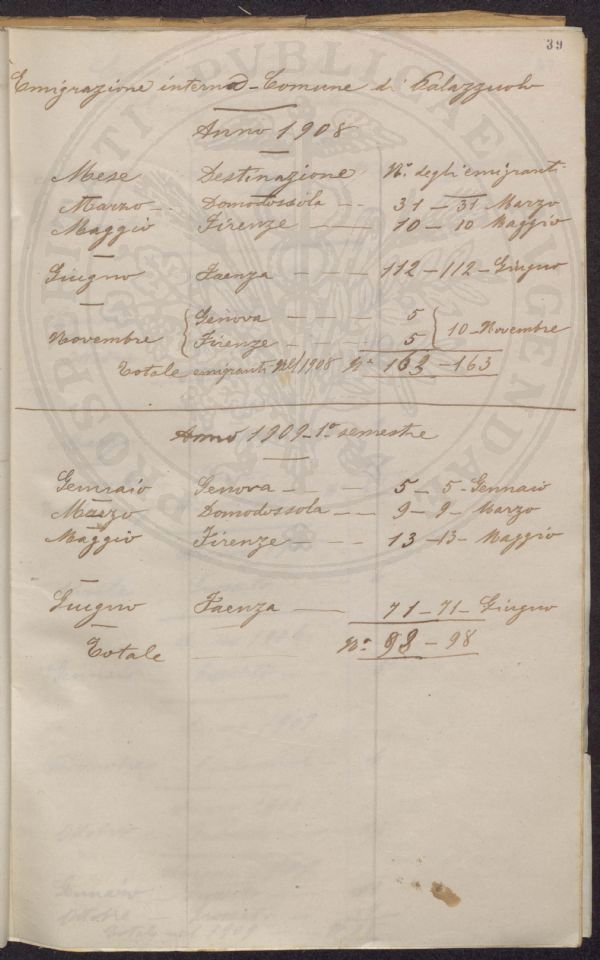 39
Emigrazione interna - Comune di Palazzuolo
Anno 1908
Mese Destinazione N.º degli emigranti
Marzo -- Domodossola -- 31 - 31 Marzo
Maggio Firenze -- 10 - 10 Maggio
Giugno Faenza --- 112 - 112 - Giugno
Genova --- 5
Novembre { } 10 - Novembre
Firenze --- 5
Totale emigranti nel 1908 Nº 163 - 163
Anno 1909 - 1º semestre
Gennaio Genova --- 5 - 5 - Gennaio
Marzo Domodossola -- 9 - 9 - Marzo
Maggio Firenze --- 13 - 13 - Maggio
Giugno Faenza -- 71 - 71 - Giugno
Totale Nº 98 - 98
PROSPERITATI PVBLICAE AVGENDAE